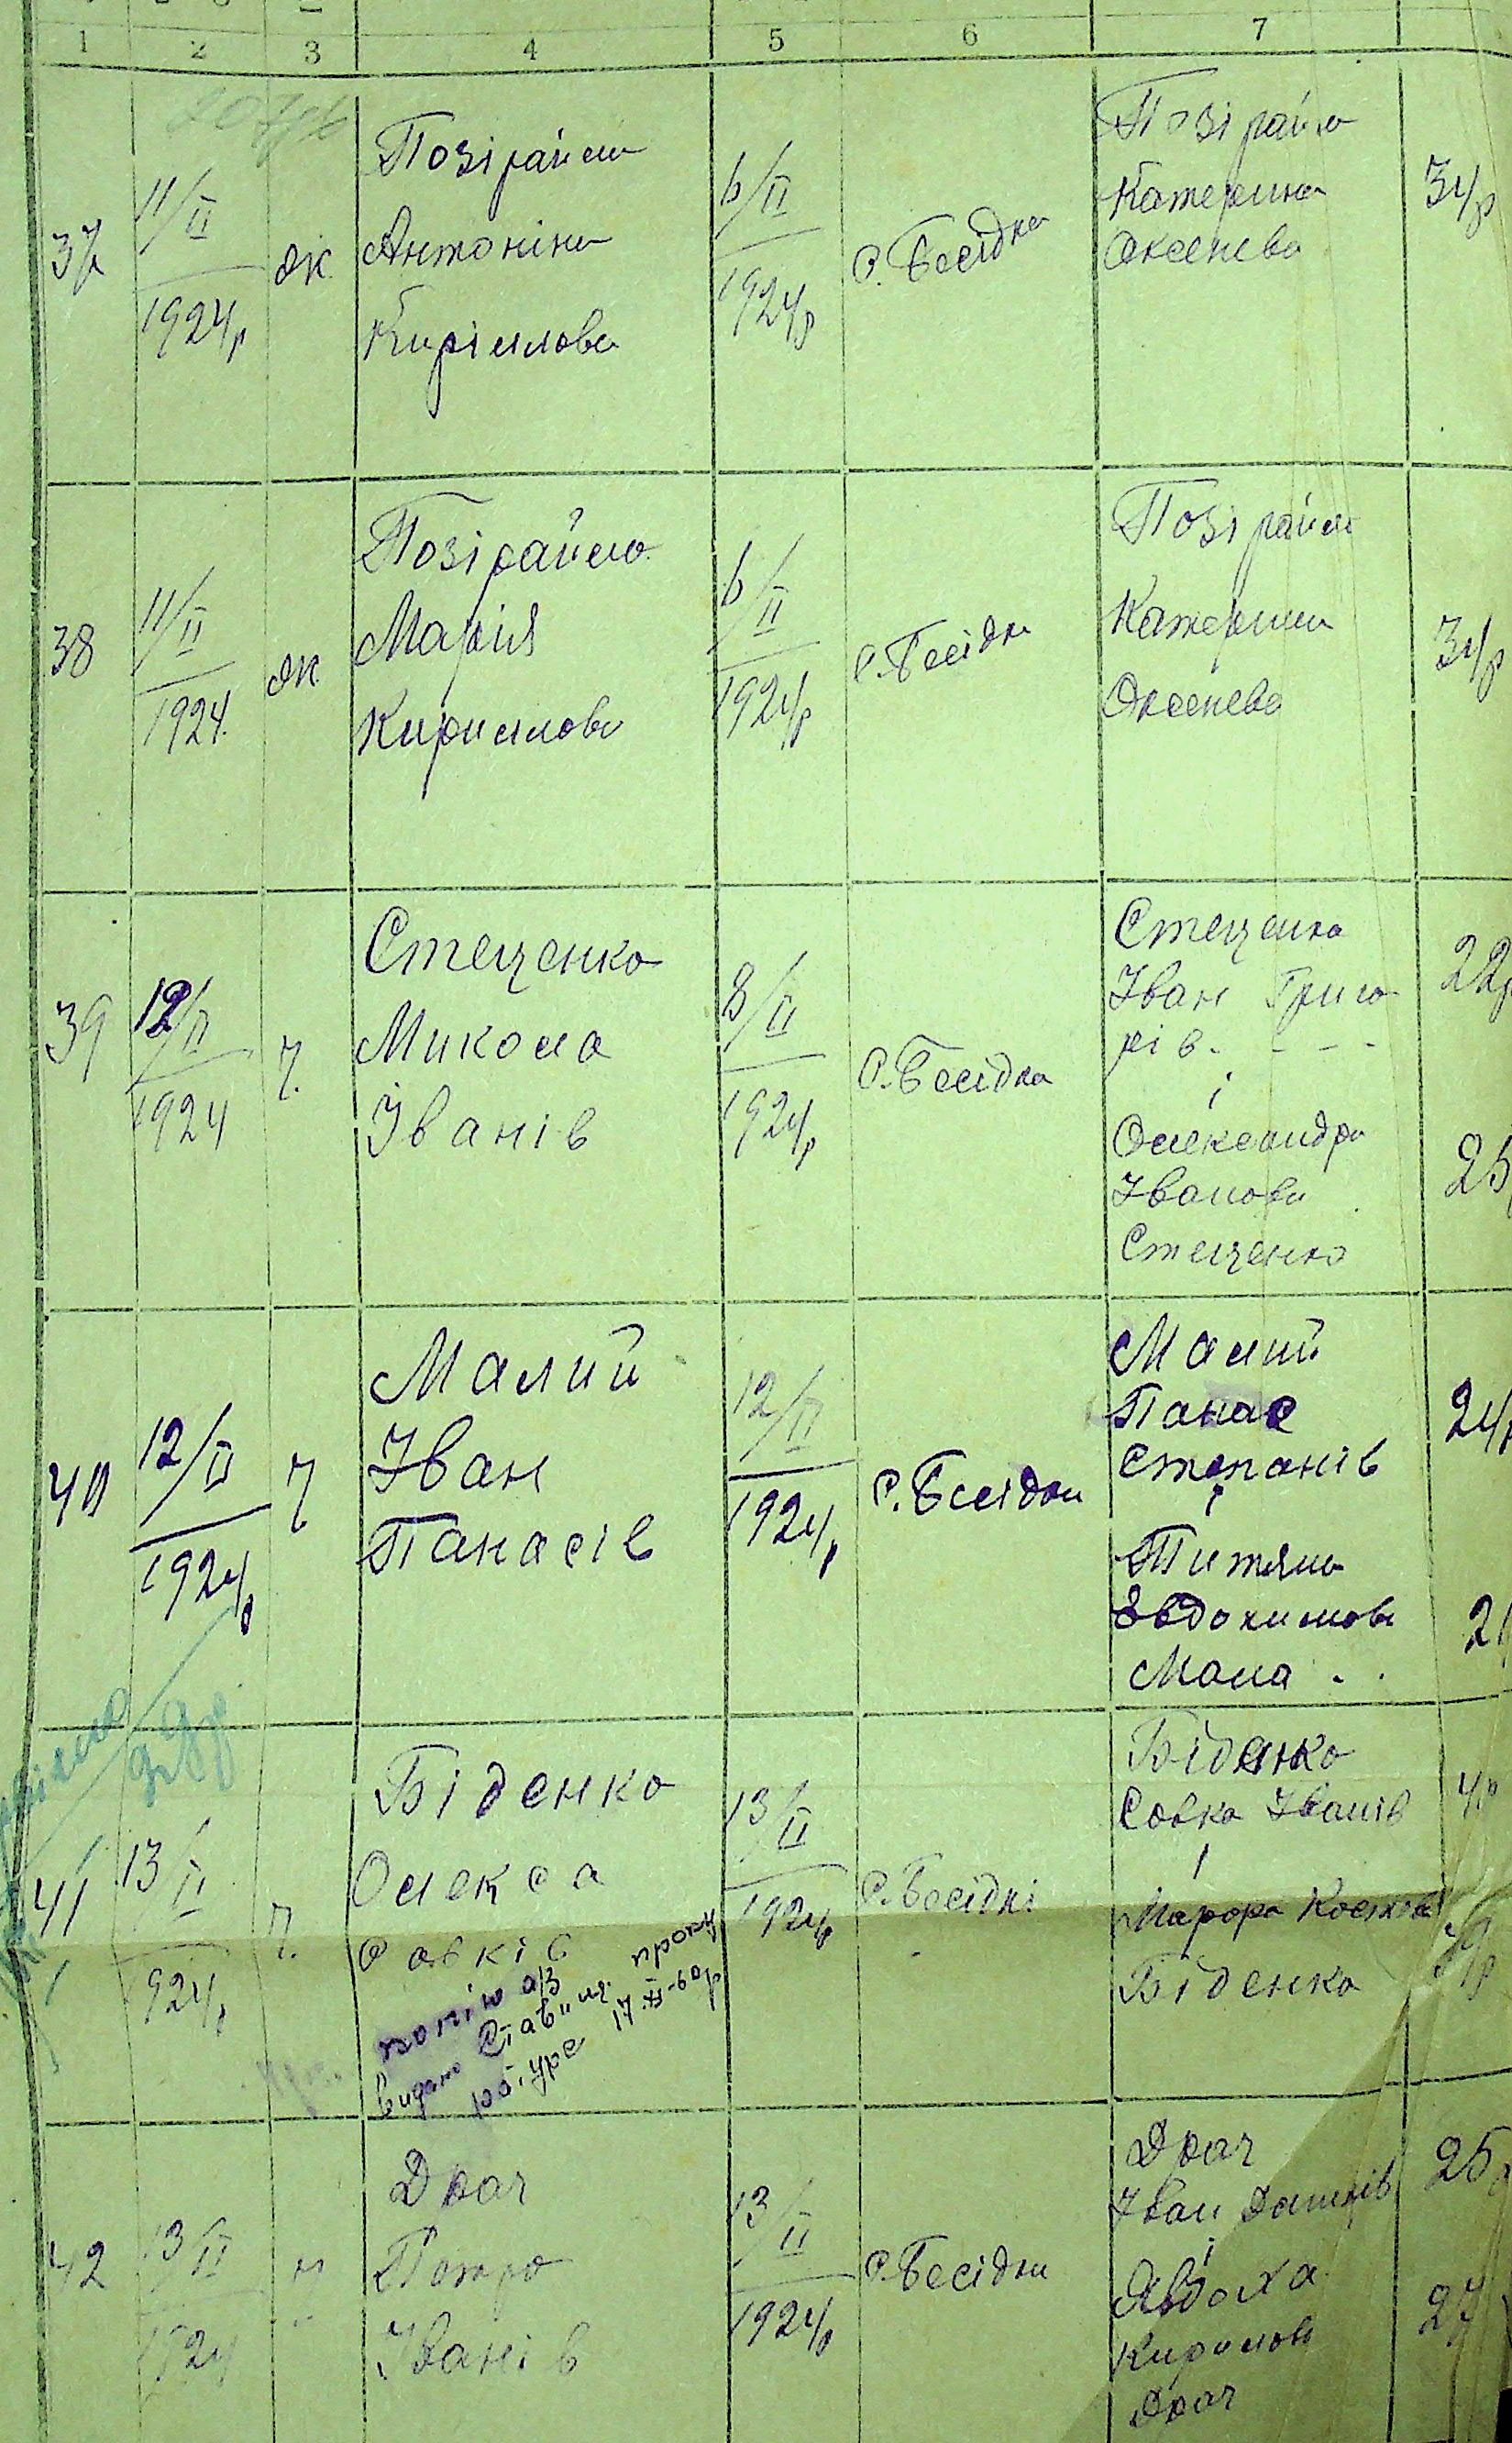 1 2 3 4 5 6 7
37
11/II
1924р
ж
Позірайло
Антоніна
Кирілова
6/II
1924р
с. Бесідка
Позірайло
Катерина
Оксенева
34р
38
11/II
1924.
ж
Позірайло
Марія
Кирилова
6/II
1924р
с. Бесідка
Позірайло
Катерина
Оксенева
34р
39
12/II
1924
ч.
Стеценко
Микола
Іванів
8/II
1924р
с. Бесідка
Стеценко
Іван Григо
рів - - -
і
Олександра
Іванова
Стеценко
22р
25
40
12/II
1924р
ч
Малий
Іван
Панасів
12/II
1924р
с. Бесідка
Малий
Панас
Степанів
і
Титяна
Евдокимова
Мала . .
24р
41
13/II
924р
ч.
Біденко
Олекса
Савків
копію аз
видано Ставищ. проку
рб. УРС 17.XI-60р
13/II
1924р
с. Бесідкі
Біденко
Савка Іванів
і
Біденко
42
13/II
1924
ч
Драч
Петро
Іванів
13/II
1924р
с. Бесідка
Драч
Іван
і
Явдоха
Кирилова
Драч
25р
27